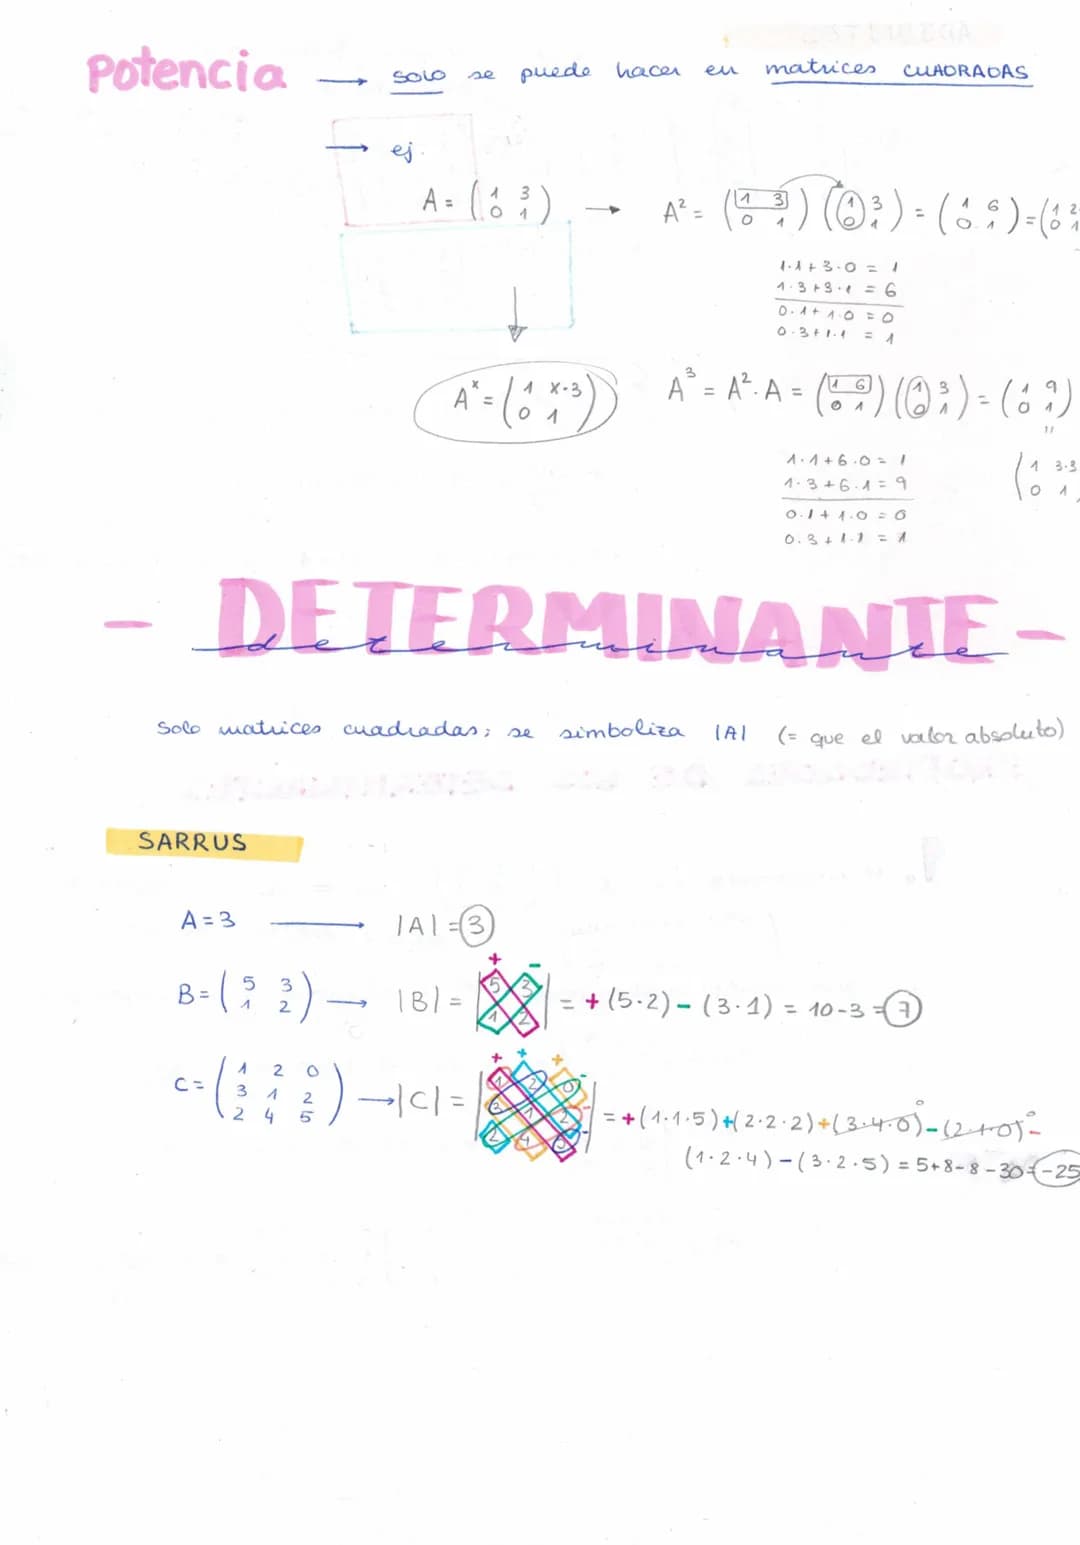 Potencia → solo se puede hacer en matrices CUADRADAS
→ ej.
A = ( 1 3 ; 0 1 ) → A² = ( 1 3 ; 0 1 ) ( 1 3 ; 0 1 ) = ( 1 6 ; 0 1 ) = ( 1 2 ; 0 1
1·1 + 3·0 = 1
1·3 + 3·1 = 6
0·1 + 1·0 = 0
0·3 + 1·1 = 1
Aˣ = ( 1 x·3 ; 0 1 )
A³ = A²·A = ( 1 6 ; 0 1 ) ( 1 3 ; 0 1 ) = ( 1 9 ; 0 1 )
"
( 1 3·3 ; 0 1
1·1 + 6·0 = 1
1·3 + 6·1 = 9
0·1 + 1·0 = 0
0·3 + 1·1 = 1
- DETERMINANTE -
determinante
Solo matrices cuadradas; se simboliza |A| (= que el valor absoluto)
SARRUS
A = 3 → |A| = 3
B = ( 5 3 ; 1 2 ) → |B| = | 5 3 ; 1 2 | = + (5·2) - (3·1) = 10-3 = 7
+ -
C = ( 1 2 0 ; 3 1 2 ; 2 4 5 ) → |C| = | 1 2 0 ; 3 1 2 ; 2 4 5 | = + (1·1·5) + (2·2·2) + (3·4·0) - (2·1·0) -
+ + + - - -
0 0
(1·2·4) - (3·2·5) = 5+8-8-30 = -25